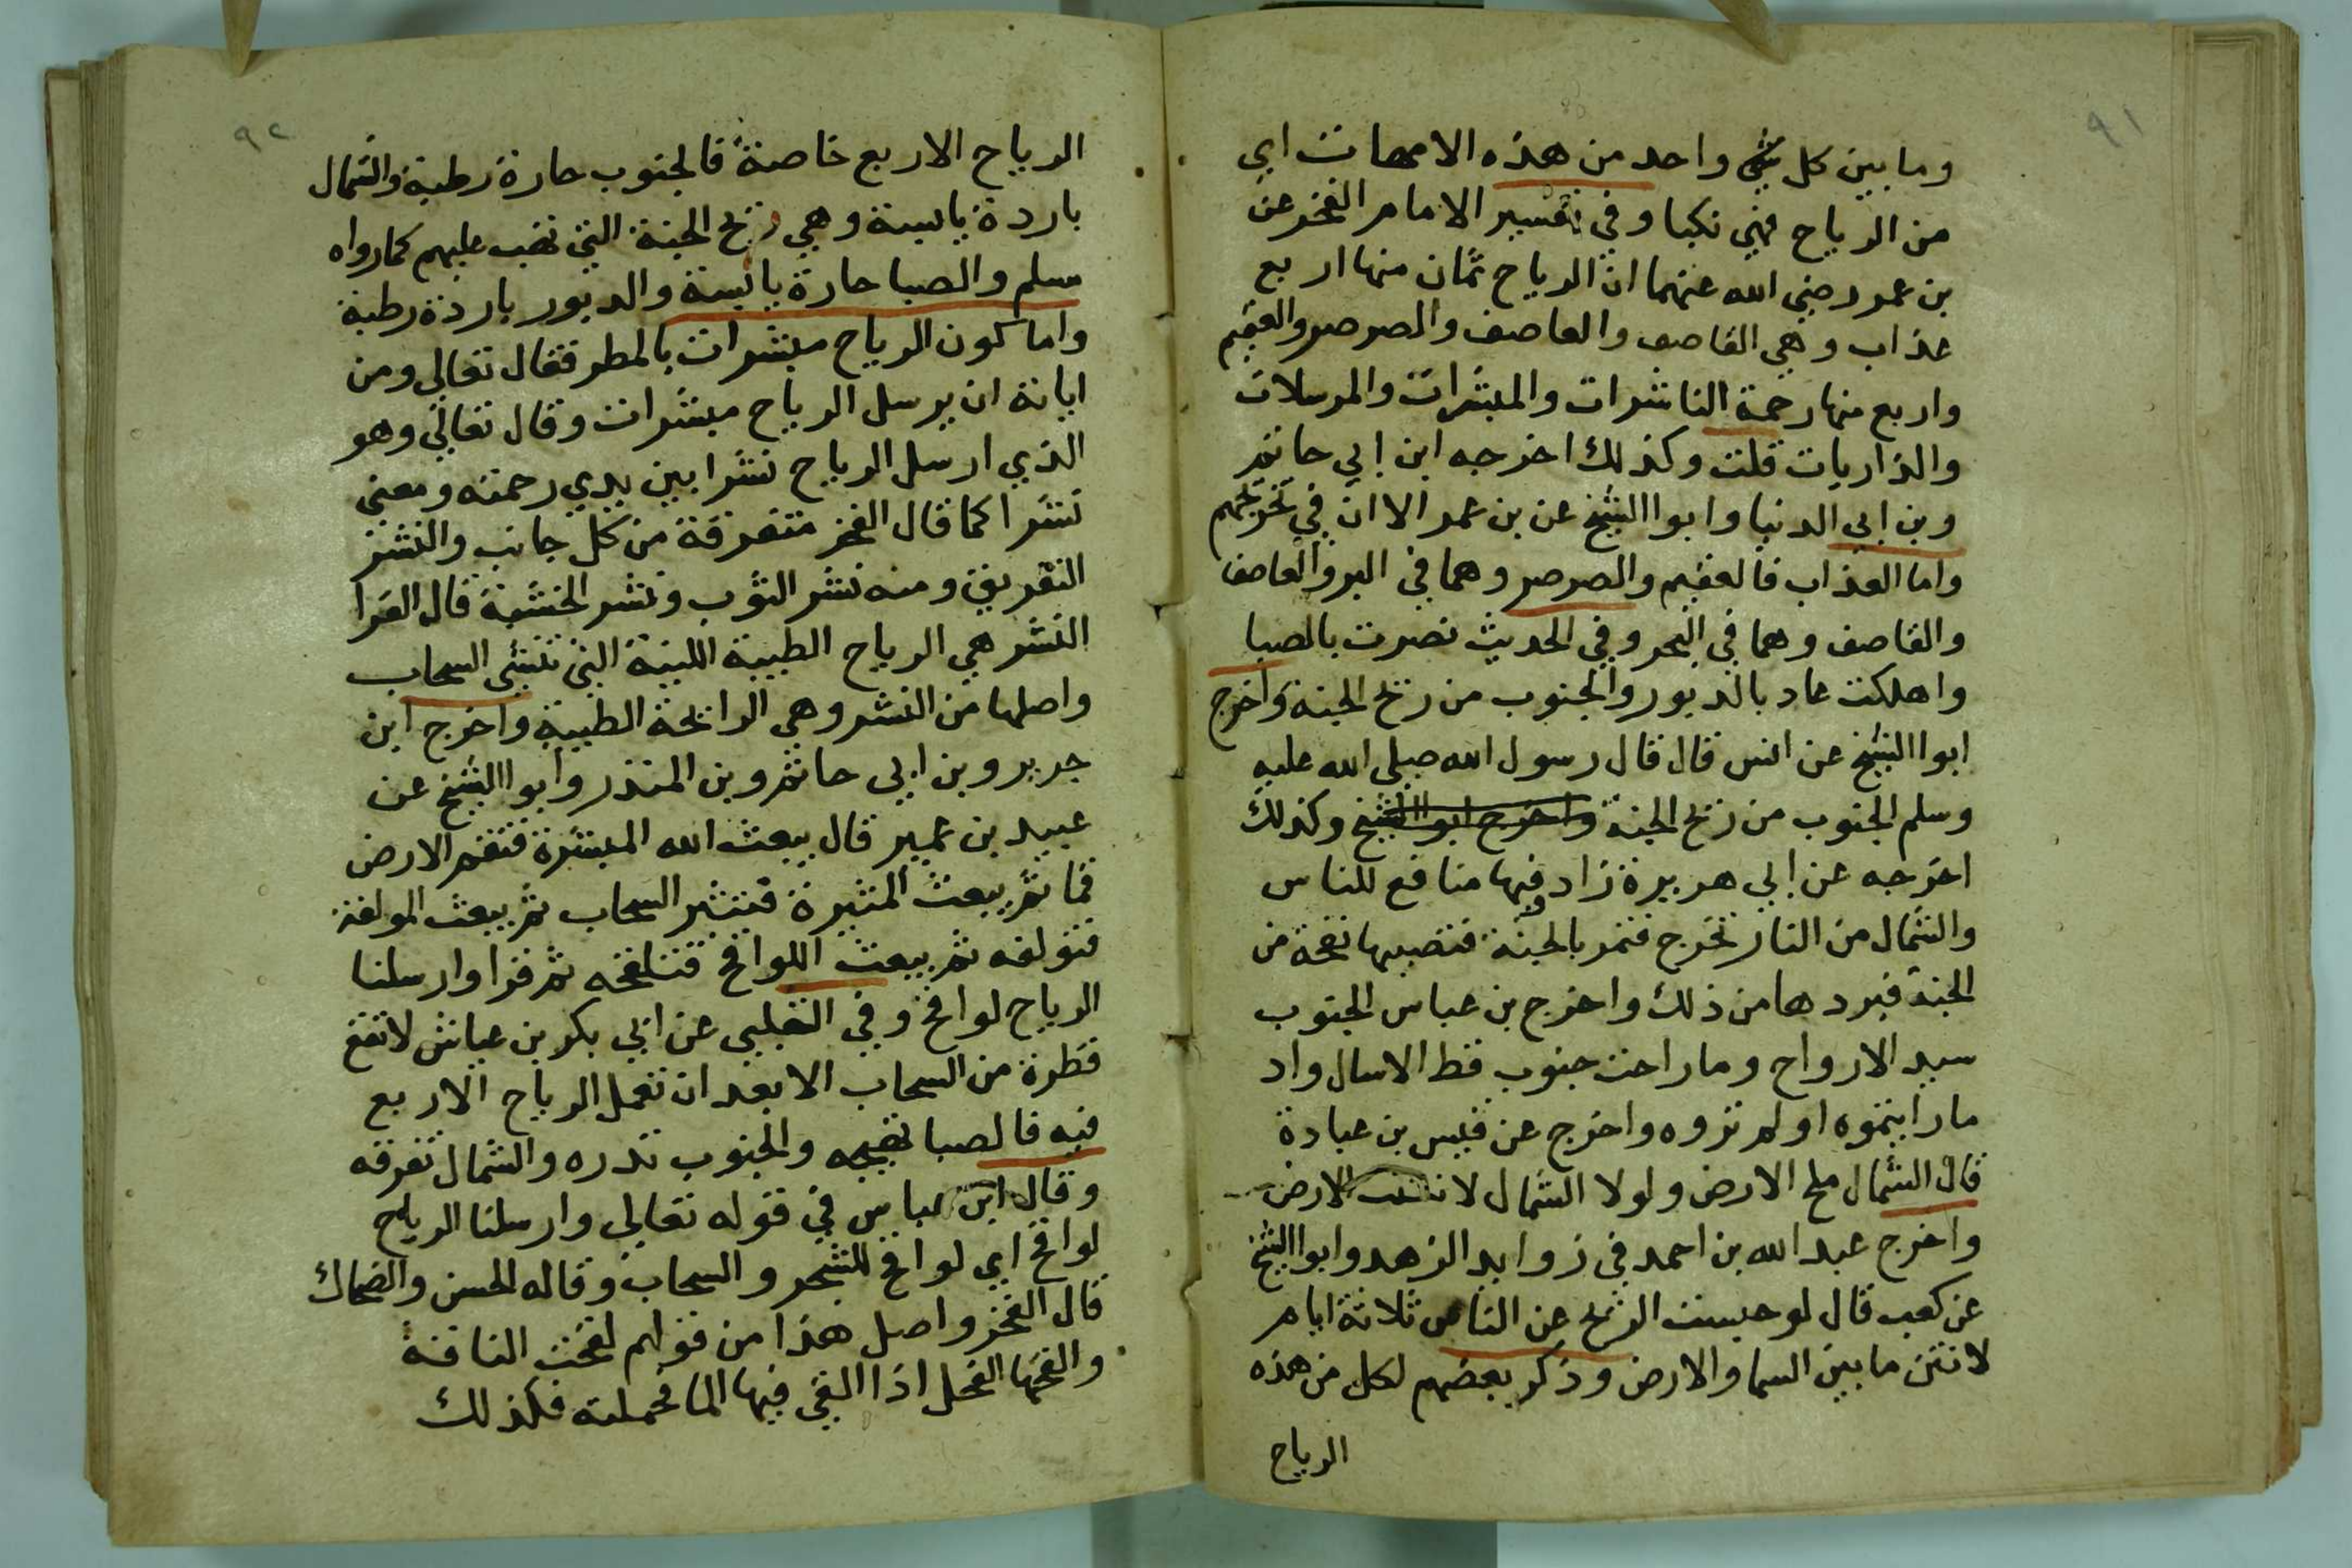 ٩١
وما بين كل شي واحد من هذه الامهات اي
من الرياح فهي نكبا وفي تفسير الامام الفخر عن
بن عمر رضي الله عنهما ان الرياح ثمان منها اربع
عذاب وهي القاصف والعاصف والصرصر والعقيم
واربع منها رحمة الناشرات والمبشرات والمرسلات
والذاريات قلت وكذلك اخرجه ابن ابي حاتم
وبن ابي الدنيا وابوا الشيخ عن بن عمر الا ان في تخرجهم
واما العذاب فالعقيم والصرصر وهما في البر والعاصف
والقاصف وهما في البحر وفي الحديث نصرت بالصبا
واهلكت عاد بالدبور والجنوب من ريح الجنة واخرج
ابوا الشيخ عن انس قال قال رسول الله صلي الله عليه
وسلم الجنوب من ريح الجنة واخرج ابوا الشيخ وكذلك
اخرجه عن ابي هريرة زاد وفيها منافع للناس
والشمال من النار تخرج فتمر بالجنة فتصيبها نفحة من
الجنة فبردها من ذلك واخرج بن عباس الجنوب
سيد الارواح وما راحت جنوب قط الا سال واد
ما رايتموه او لم تروه واخرج عن قيس بن عبادة
قال الشمال ملح الارض ولولا الشمال لانتنت الارض
واخرج عبد الله بن احمد في زوايد الزهد وابوا الشيخ
عن كعب قال لو حبست الريح عن الناس ثلاثة ايام
لانتن ما بين السما والارض وذكر بعضهم لكل من هذه
الرياح
٩٢
الرياح الاربع خاصة فالجنوب حارة رطبة والشمال
باردة يابسة وهي ريح الجنة التي تهب عليهم كما رواه
مسلم والصبا حارة يابسة والدبور باردة رطبة
واما كون الرياح مبشرات بالمطر فقال تعالي ومن
اياته ان يرسل الرياح مبشرات وقال تعالي وهو
الذي ارسل الرياح نشرا بين يدي رحمته ومعني
نشرا كما قال الفخر متفرقة من كل جانب والنشر
التفريق ومنه نشر الثوب ونشر الخشبة قال الفرا
النشر هي الرياح الطيبة اللينة التي تنشي السحاب
واصلها من النشر وهي الرائحة الطيبة واخرج ابن
جرير وبن ابي حاتم وبن المنذر وابوا الشيخ عن
عبيد بن عمير قال يبعث الله المبشرة فتقم الارض
قما ثم يبعث المثيرة فتثير السحاب ثم يبعث المولفة
فتولفه ثم يبعث اللواقح فتلقحه ثم قرا وارسلنا
الرياح لواقح وفي الثعلبي عن ابي بكر بن عياش لا تقع
قطرة من السحاب الا بعد ان تعمل الرياح الاربع
فيه فالصبا تهيجه والجنوب تدره والشمال تفرقه
وقال ابن عباس في قوله تعالي وارسلنا الرياح
لواقح اي لواقح للشجر والسحاب وقاله الحسن والضحاك
قال الفخر واصل هذا من قولهم لقحت الناقة
والقحها الفحل اذا القي فيها الما فحملته فكذلك